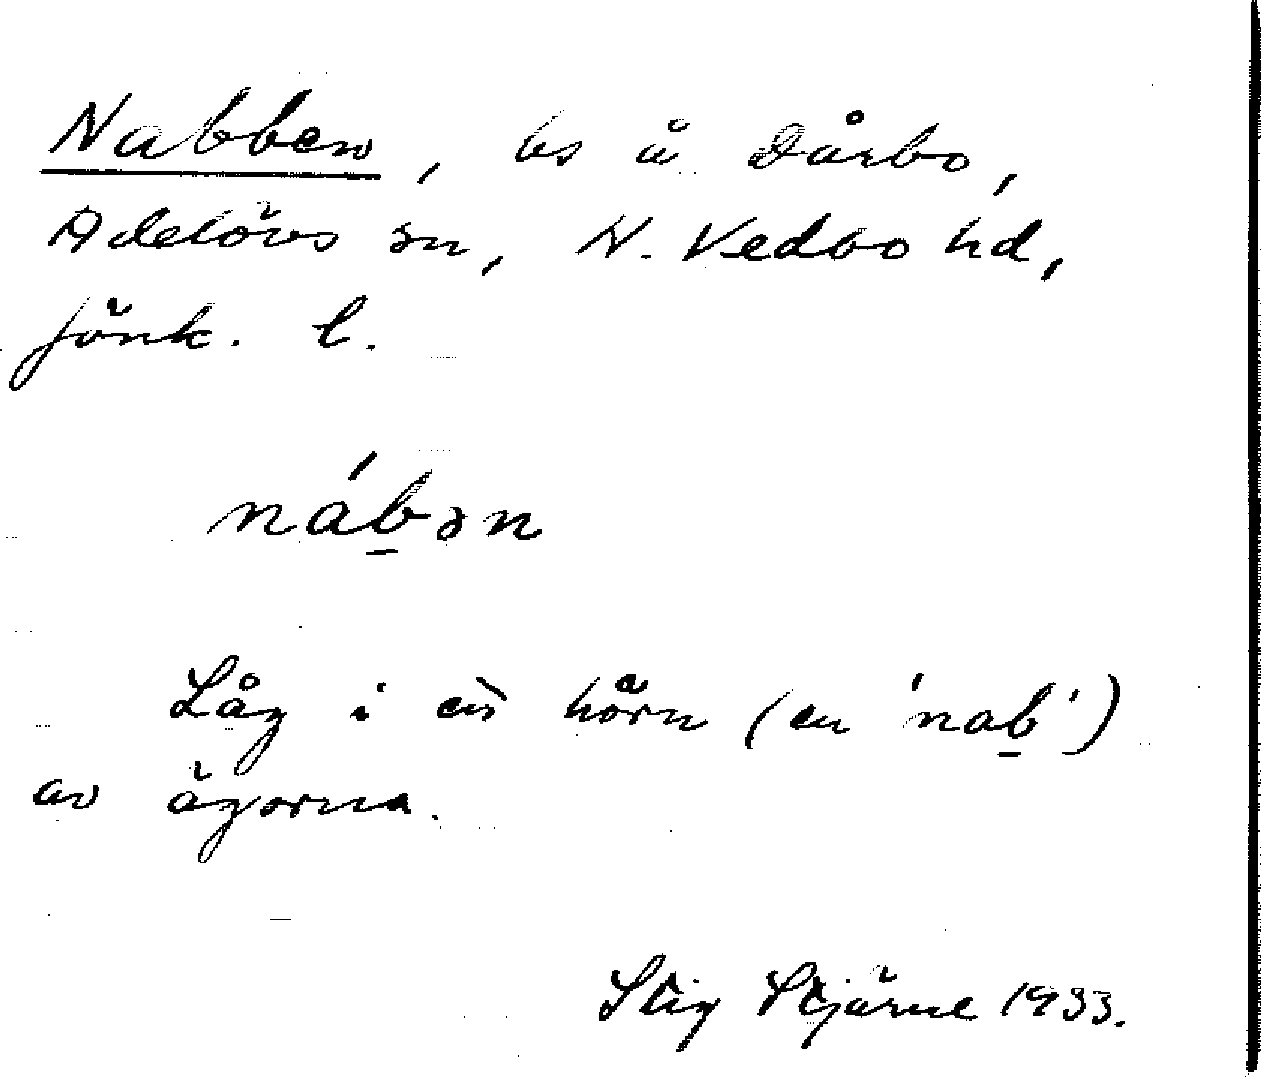 Nabben, bs å Dårbo,
Adelövs sn, N. Vedbo hd,
Jönk. l.
nábən
Låg i en hörn (en 'nab')
av ägorna.
Stig Stjärne 1933.